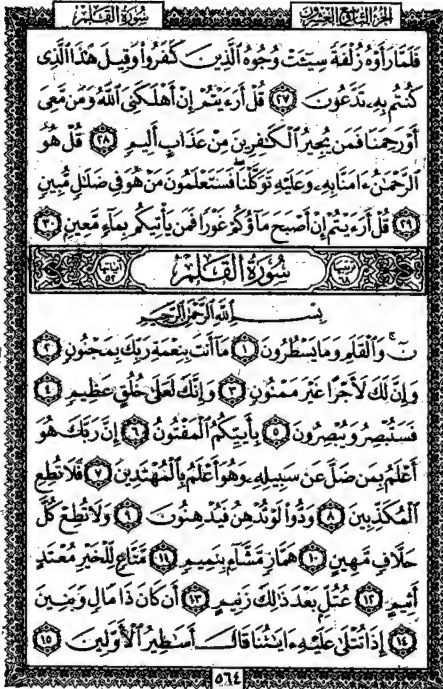 الجزء التاسع والعشرون
سورة القلم
فَلَمَّا رَأَوْهُ زُلْفَةً سِيٓـَٔتْ وُجُوهُ ٱلَّذِينَ كَفَرُوا۟ وَقِيلَ هَٰذَا ٱلَّذِى
كُنتُم بِهِۦ تَدَّعُونَ ٢٧ قُلْ أَرَءَيْتُمْ إِنْ أَهْلَكَنِىَ ٱللَّهُ وَمَن مَّعِىَ
أَوْ رَحِمَنَا فَمَن يُجِيرُ ٱلْكَٰفِرِينَ مِنْ عَذَابٍ أَلِيمٍ ٢٨ قُلْ هُوَ
ٱلرَّحْمَٰنُ ءَامَنَّا بِهِۦ وَعَلَيْهِ تَوَكَّلْنَا فَسَتَعْلَمُونَ مَنْ هُوَ فِى ضَلَٰلٍ مُّبِينٍ
٢٩ قُلْ أَرَءَيْتُمْ إِنْ أَصْبَحَ مَآؤُكُمْ غَوْرًا فَمَن يَأْتِيكُم بِمَآءٍ مَّعِينٍ ٣٠
ترتيبها ٦٨ سورة القلم آياتها ٥٢
بِسْمِ ٱللَّهِ ٱلرَّحْمَٰنِ ٱلرَّحِيمِ
نٓ ۚ وَٱلْقَلَمِ وَمَا يَسْطُرُونَ ١ مَآ أَنتَ بِنِعْمَةِ رَبِّكَ بِمَجْنُونٍ ٢
وَإِنَّ لَكَ لَأَجْرًا غَيْرَ مَمْنُونٍ ٣ وَإِنَّكَ لَعَلَىٰ خُلُقٍ عَظِيمٍ ٤
فَسَتُبْصِرُ وَيُبْصِرُونَ ٥ بِأَييِّكُمُ ٱلْمَفْتُونُ ٦ إِنَّ رَبَّكَ هُوَ
أَعْلَمُ بِمَن ضَلَّ عَن سَبِيلِهِۦ وَهُوَ أَعْلَمُ بِٱلْمُهْتَدِينَ ٧ فَلَا تُطِعِ
ٱلْمُكَذِّبِينَ ٨ وَدُّوا۟ لَوْ تُدْهِنُ فَيُدْهِنُونَ ٩ وَلَا تُطِعْ كُلَّ
حَلَّافٍ مَّهِينٍ ١٠ هَمَّازٍ مَّشَّآءٍۭ بِنَمِيمٍ ١١ مَّنَّاعٍ لِّلْخَيْرِ مُعْتَدٍ
أَثِيمٍ ١٢ عُتُلٍّۭ بَعْدَ ذَٰلِكَ زَنِيمٍ ١٣ أَن كَانَ ذَا مَالٍ وَبَنِينَ
١٤ إِذَا تُتْلَىٰ عَلَيْهِ ءَايَٰتُنَا قَالَ أَسَٰطِيرُ ٱلْأَوَّلِينَ ١٥
٥٦٤